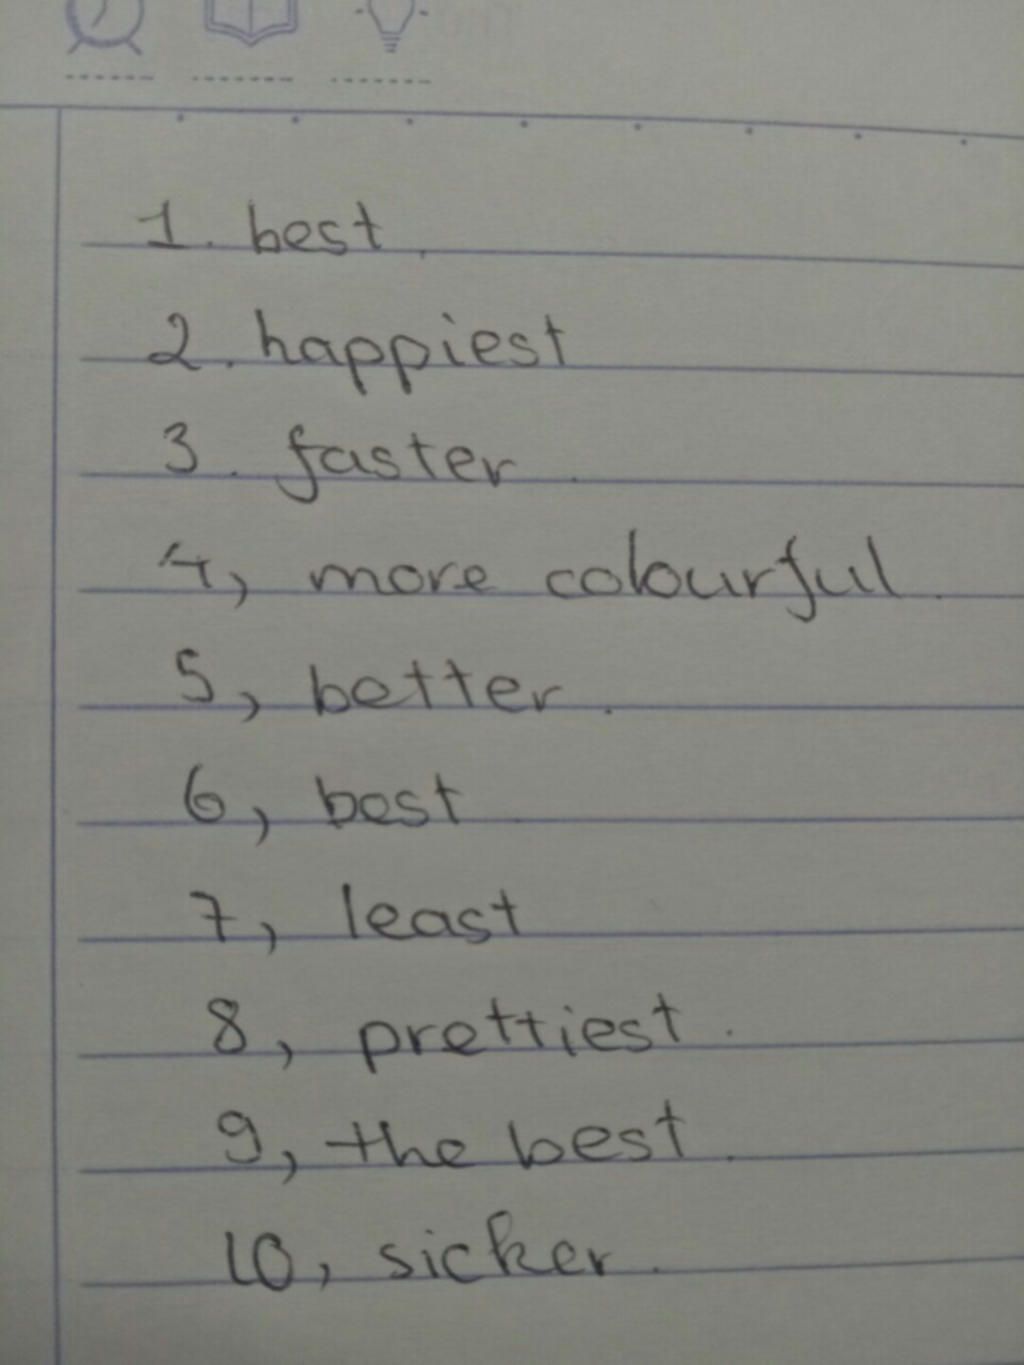 1. best.
2. happiest
3. faster.
4, more colourful.
5, better.
6, best
7, least
8, prettiest.
9, the best.
10, sicker.